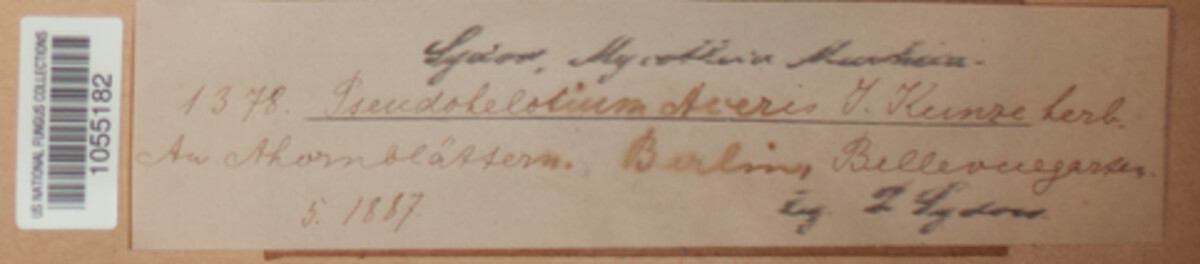 US NATIONAL FUNGUS COLLECTIONS
1055182
Sydow, Mycotheca Marchica.
1378. Pseudohelotium Aceris J. Kunze herb.
Au Ahornblättern. Berlin, Bellevuegarten.
5. 1887
Leg. P Sydow